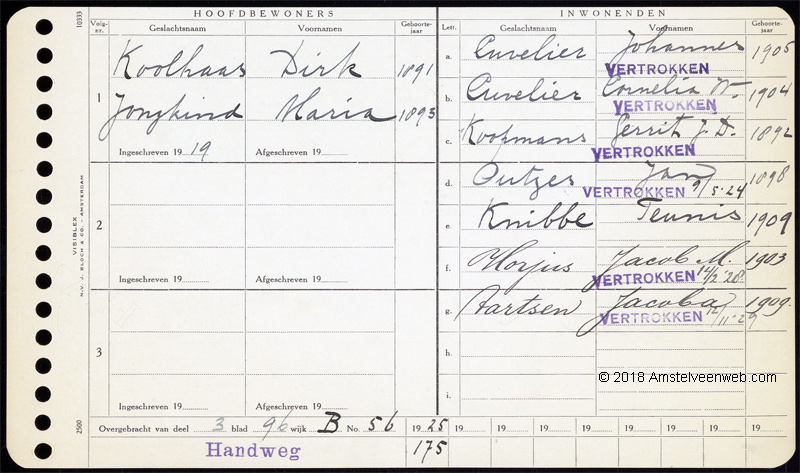 HOOFDBEWONERS
Volg-nr. Geslachtsnaam Voornamen Geboorte-jaar
1 Koolhaas Dirk 1891
Jongkind Maria 1893
Ingeschreven 19 19 Afgeschreven 19
2
Ingeschreven 19 Afgeschreven 19
3
Ingeschreven 19 Afgeschreven 19
INWONENDEN
Lett. Geslachtsnaam Voornamen Geboorte-jaar
a. Cuvelier Johannes 1905
VERTROKKEN
b. Cuvelier Cornelia W. 1904
VERTROKKEN
c. Koopmans Gerrit J. D. 1892
VERTROKKEN
d. Jan 1898
VERTROKKEN 9/5-24
e. Knibbe Teunis 1909
f. Horjus Jacob M. 1903
VERTROKKEN 14/2 '28
g. Aartsen Jacoba 1909
VERTROKKEN 12/11-29
h.
i.
© 2018 Amstelveenweb.com
Overgebracht van deel 3 blad 96 wijk B No. 56 19 25 19 19 19 19 19 19 19 19
Handweg 175
10333
VISIBLEX
N.V. J. BLOCH & CO. - AMSTERDAM
2500